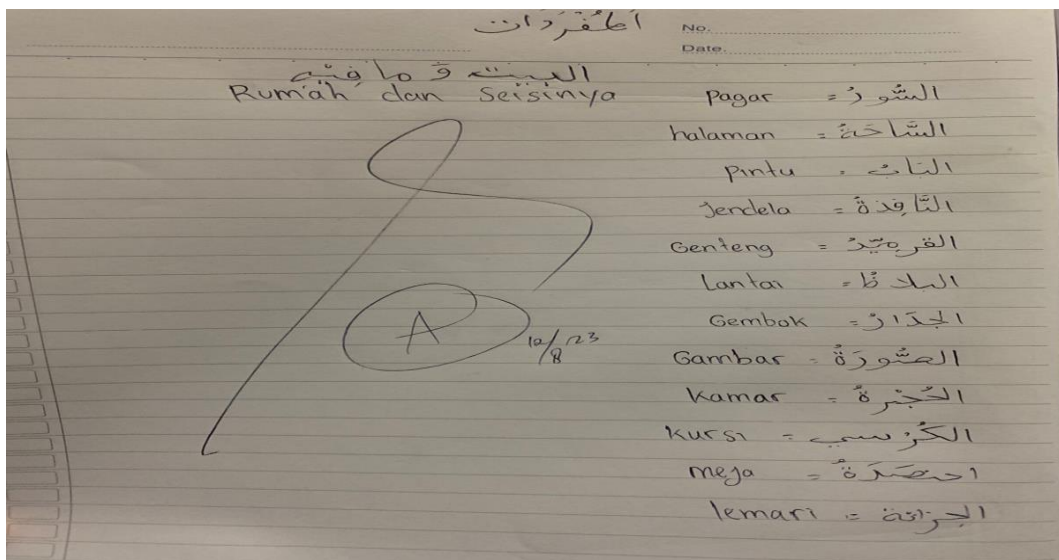 المفردات
No.
Date.
البيت و ما فيه
Rumah dan Seisinya
Pagar = السُّورُ
halaman = السَّاحَةُ
Pintu = البَابُ
Jendela = النَّافِذَةُ
Genteng = القرمِيْدُ
Lantai = البلاطُ
Gembok = الجِدَارُ
Gambar = الصُّورَةُ
Kamar = الحُجْرةُ
Kursi = الكُرْسي
meja =
lemari =
A
12/8/23